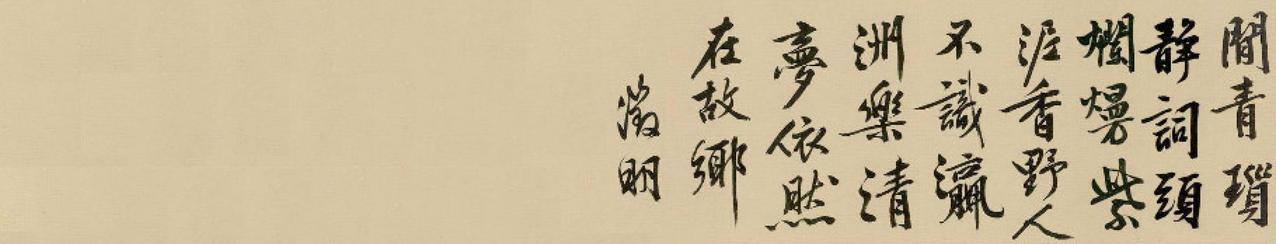 間青瑣
静詞頭
爛熳紫
泥香野人
不識瀛
洲樂清
夢依然
在故鄉
徵明